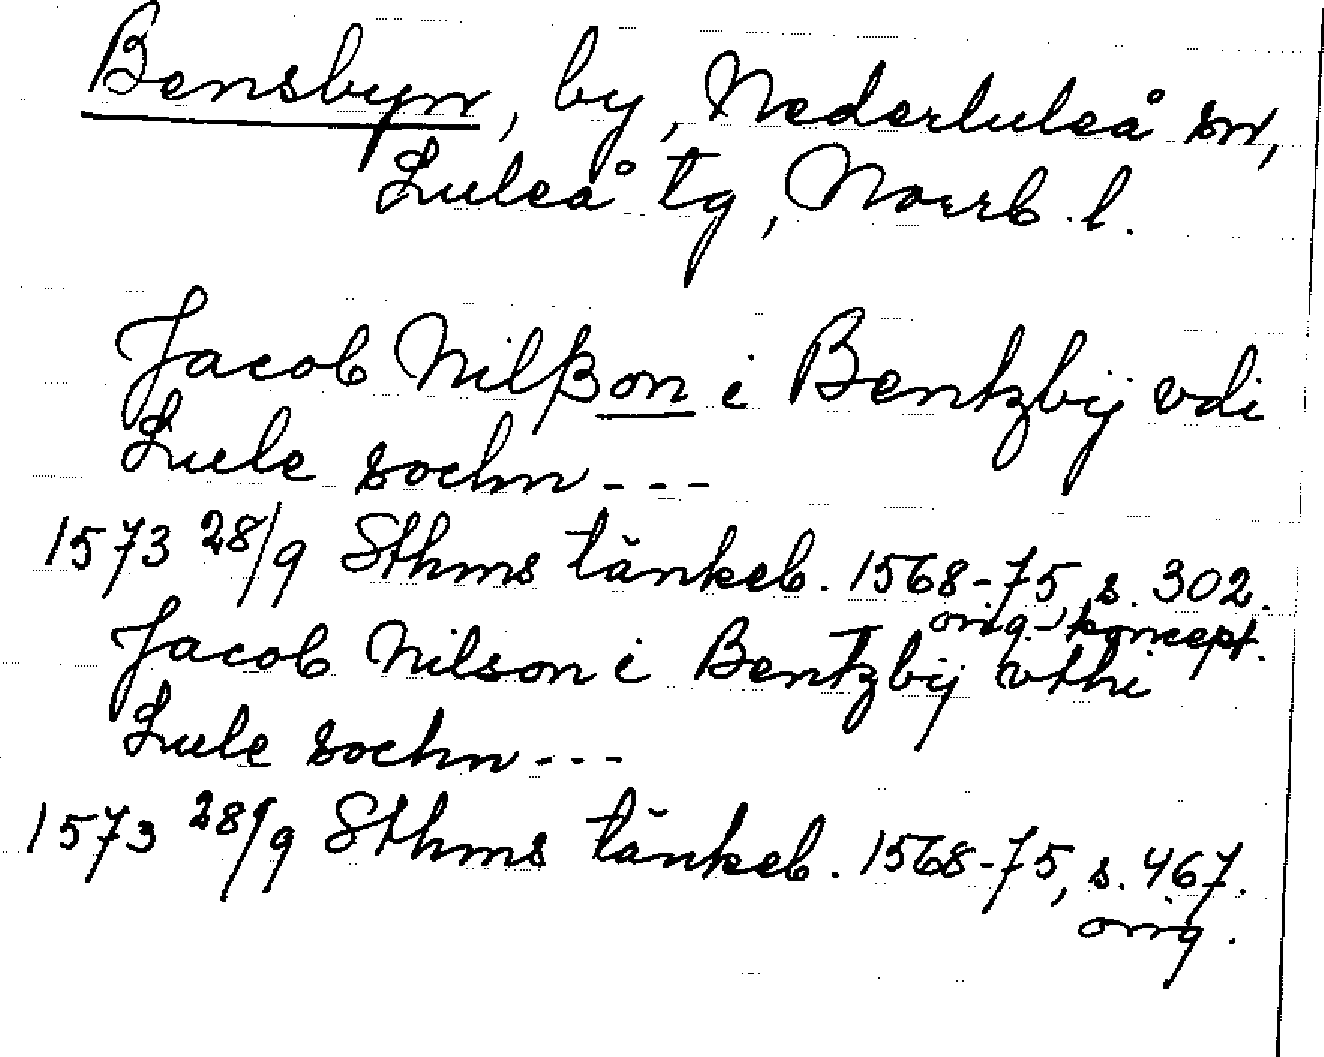 Bensbyn, by, Nederluleå sn,
Luleå tg, Norrb. l.
Jacob Nilßon i Bentzbij vdi
Lule sochn ---
1573 28/9 Sthms tänkeb. 1568-75, s. 302.
orig.-koncept.
Jacob Nilson i Bentzbij vthi
Lule sochn ---
1573 28/9 Sthms tänkeb. 1568-75, s. 467.
orig.